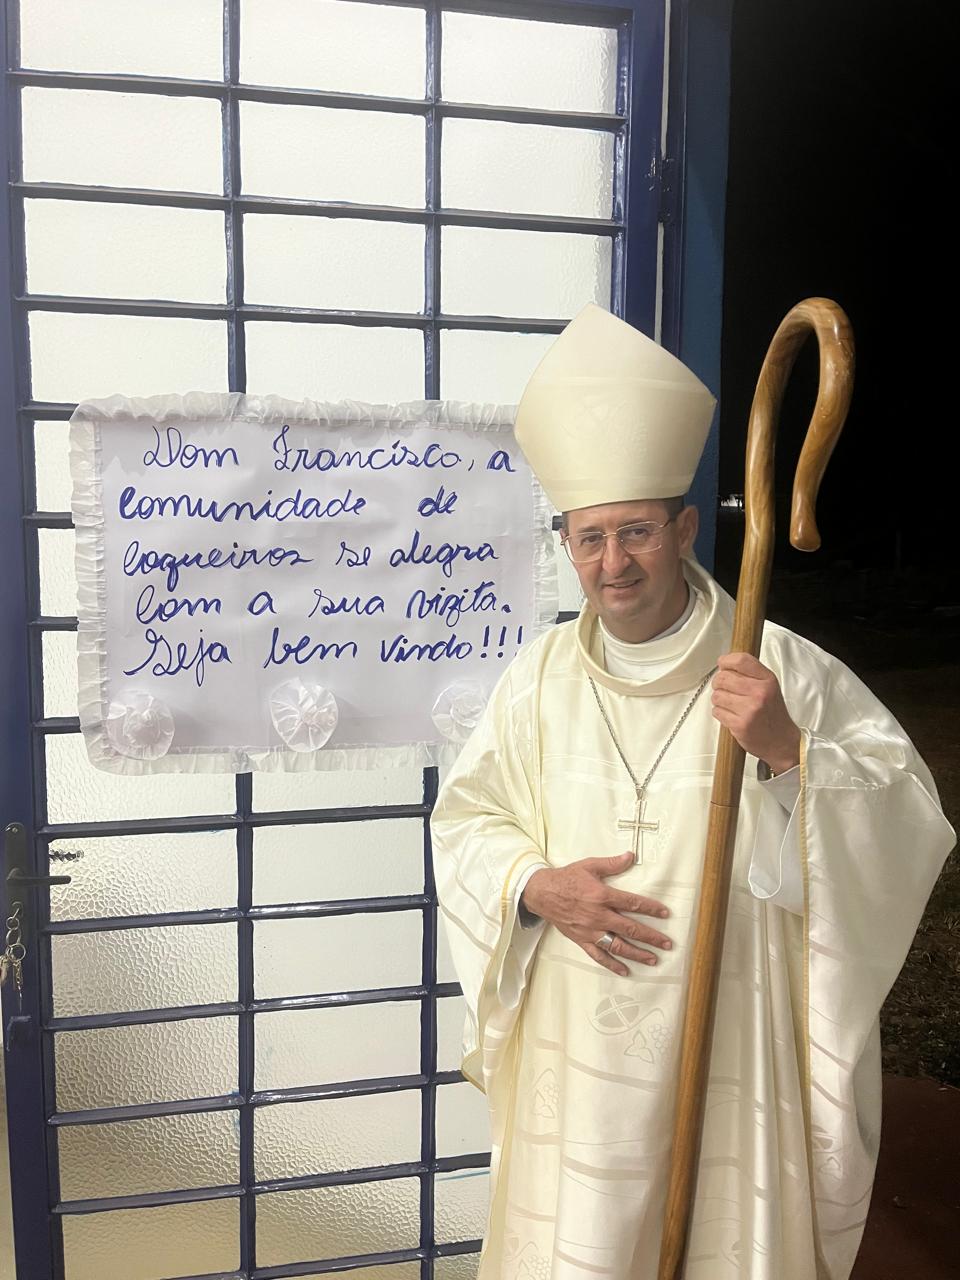 Dom Francisco, a
comunidade de
Coqueiros se alegra
com a sua vizita.
Seja bem vindo!!!